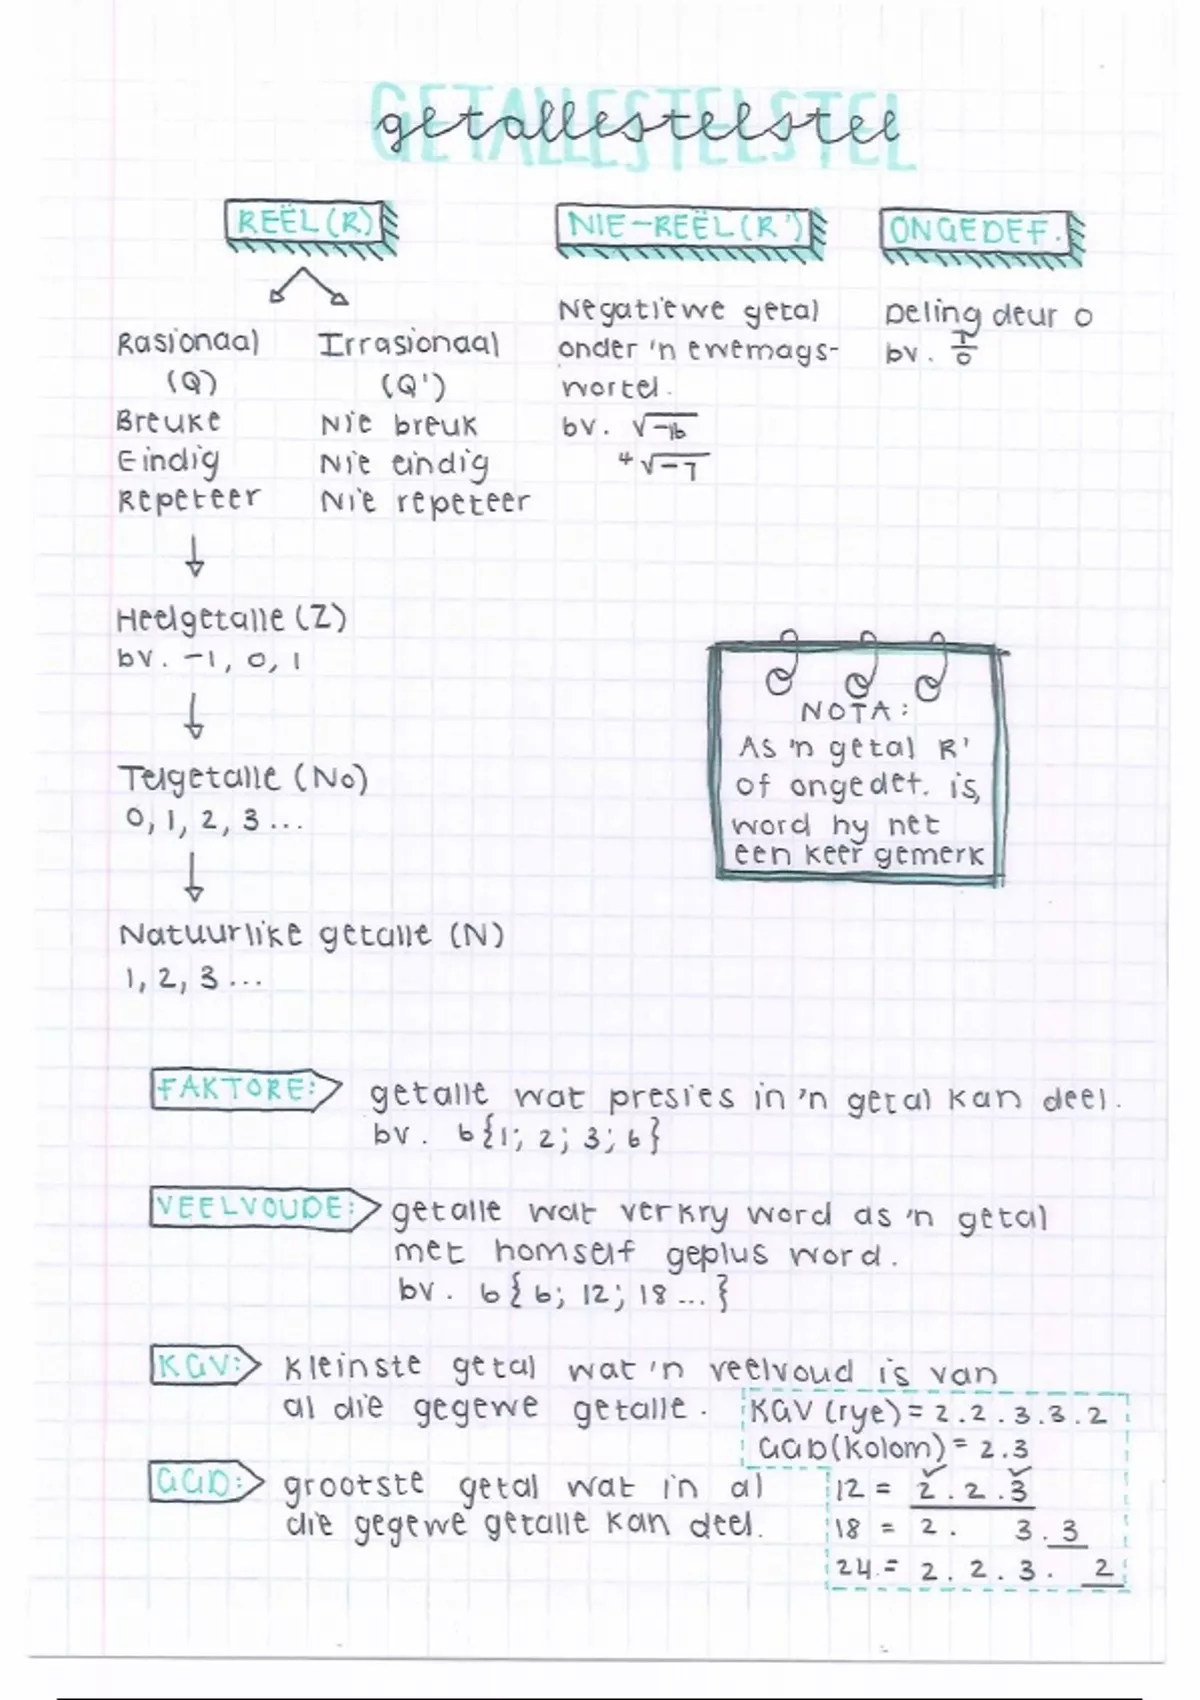 getallestelstel
REËL (R)
NIE-REËL (R')
ONGEDEF.
Rasionaal
(Q)
Breuke
Eindig
Repeteer
Irrasionaal
(Q')
Nie breuk
Nie eindig
Nie repeteer
Negatiewe getal
onder 'n ewemags-
wortel.
bv. √-16
⁴√-7
Deling deur 0
bv. 7/0
Heelgetalle (Z)
bv. -1, 0, 1
Telgetalle (No)
0, 1, 2, 3 ...
Natuurlike getalle (N)
1, 2, 3 ...
NOTA:
As 'n getal R'
of ongedef. is,
word hy net
een keer gemerk
FAKTORE: getalle wat presies in 'n getal kan deel.
bv. 6{1; 2; 3; 6}
VEELVOUDE: getalle wat verkry word as 'n getal
met homself geplus word.
bv. 6{6; 12; 18 ...}
KGV: Kleinste getal wat 'n veelvoud is van
al die gegewe getalle.
GGD: grootste getal wat in al
die gegewe getalle kan deel.
KGV (rye) = 2.2.3.3.2
GGD (kolom) = 2.3
12 = 2.2.3
18 = 2. 3.3
24 = 2.2.3. 2